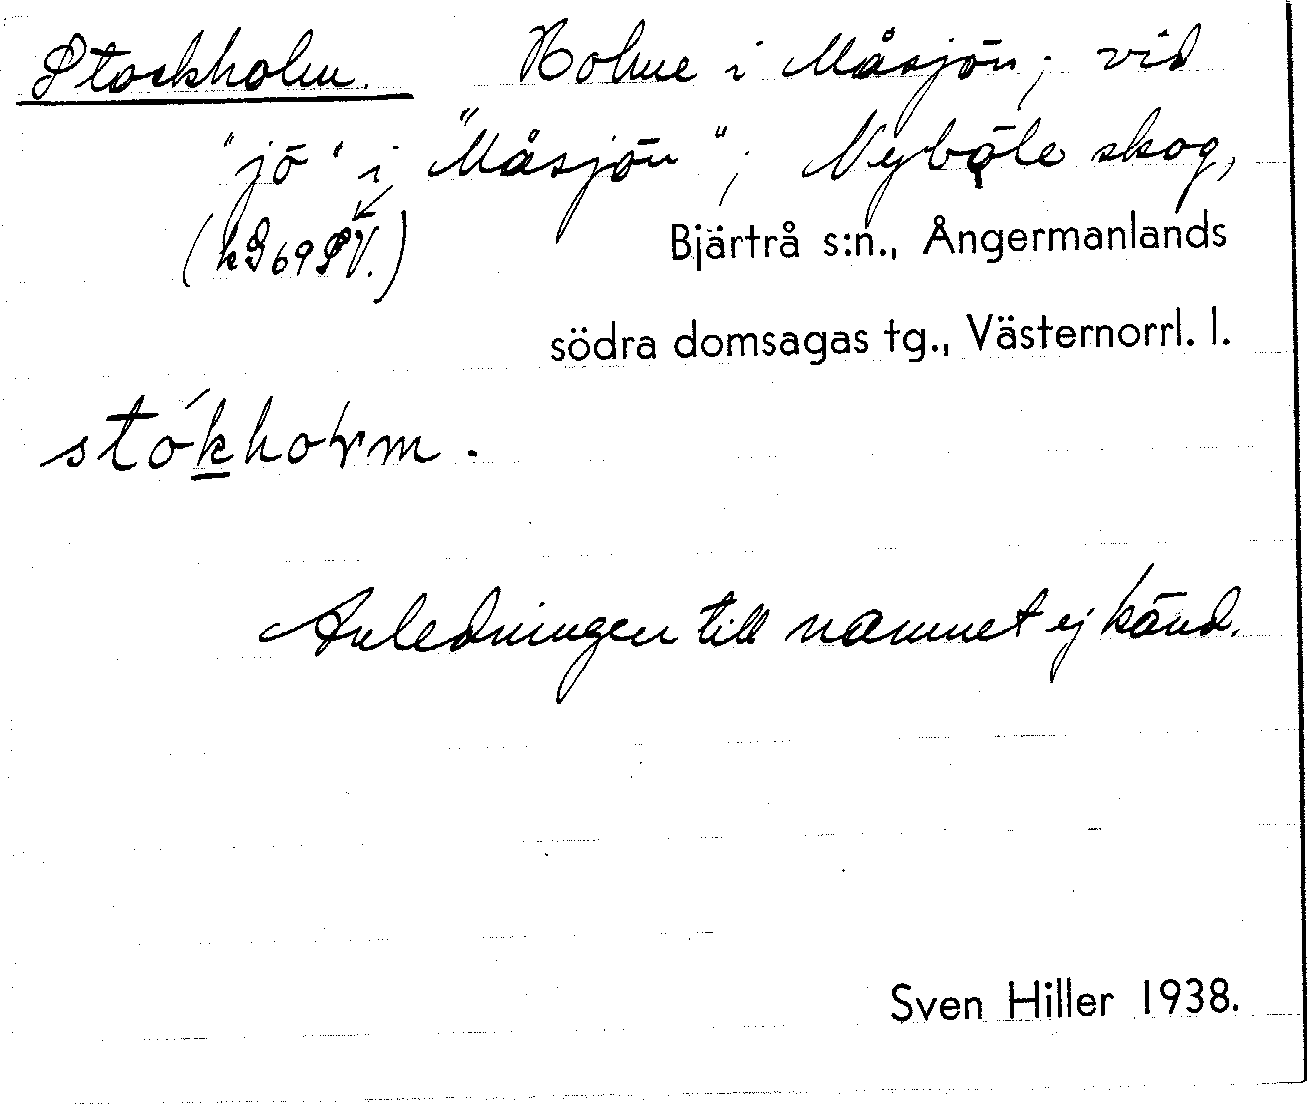 Stockholm. Holme i Måsjön; vid
"jö" i "Måsjön"; Nyböle skog,
(kG69SV.) Bjärtrå s:n., Ångermanlands
södra domsagas tg., Västernorrl. l.
stókholm.
Anledningen till namnet ej känd.
Sven Hiller 1938.